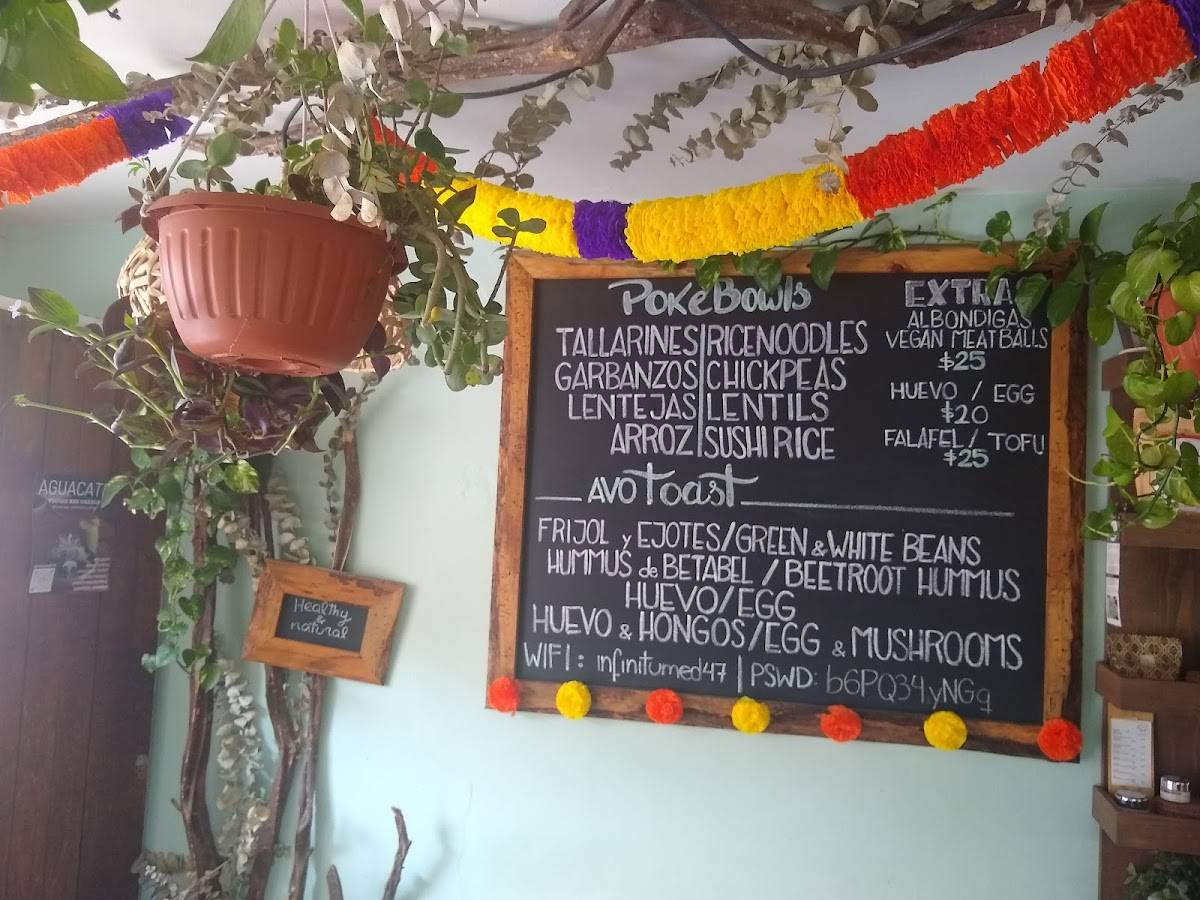 Poke Bowls
TALLARINES|RICENOODLES
GARBANZOS|CHICKPEAS
LENTEJAS|LENTILS
ARROZ|SUSHI RICE
EXTRA
ALBONDIGAS
VEGAN MEATBALLS
$25
HUEVO / EGG
$20
FALAFEL / TOFU
$25
AVO Toast
FRIJOL y EJOTES/GREEN & WHITE BEANS
HUMMUS de BETABEL / BEETROOT HUMMUS
HUEVO/EGG
HUEVO & HONGOS/EGG & MUSHROOMS
WIFI: infinitumed47 | PSWD: b6PQ34yNGg
Healthy
&
natural
AGUACAT